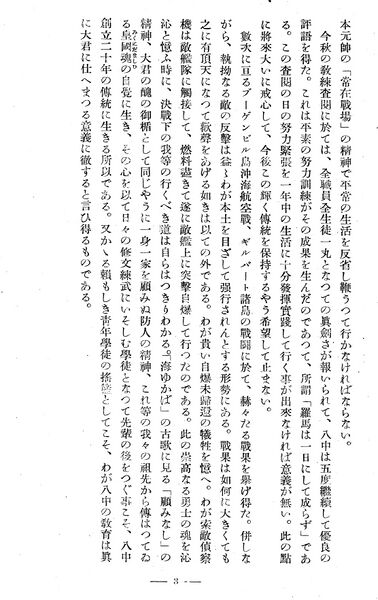 本元帥の「常在戰場」の精神で平常の生活を反省し鞭うつて行かなければならない。
今秋の敎練査閲に於ては、全職員全生徒一丸となつての眞劍さが報いられて、八中は五度繼續して優良の
評語を得た。これは平素の努力訓練がその成果を生んだのであつて、所謂「羅馬は一日にして成らず」であ
る。この査閲の日の努力緊張を一年中の生活に十分發揮實踐して行く事が出來なければ意義が無い。此の點
に將來大いに戒心して、今後この輝く傳統を保持するやう希望して止まない。
數次に亘るブーゲンビル島沖海航空戰、ギルバート諸島の戰鬪に於て、赫々たる戰果を擧げ得た。併しな
がら、執拗なる敵の反擊は益〻わが本土を目ざして强行されんとする形勢にある。戰果は如何に大きくとも
之に有頂天になつて歡聲をあげる如きは以ての外である。わが貴い自爆未歸還の犧牲を憶へ。わが索敵偵察
機は敵艦隊に觸接して、燃料盡きて遂に敵艦上に突擊自爆して行つたのである。此の崇高なる勇士の魂を沁
沁と憶ふ時に、決戰下の我等の行くべき道は自らはつきりわかる。「海ゆかば」の古歌に見る「顧みなし」の
精神、大君の醜の御楯として同じやうに一身一家を顧みぬ防人の精神、これ等の我々の祖先から傳はつてゐ
る皇國魂の自覺に生き、その心を以て日々の修文練武にいそしむ學徒となつて先輩の後をつぐ事こそ、八中
創立二十年の傳統に生きる所以である。又かゝる賴もしき靑年學徒の搖籃としてこそ、わが八中の敎育は眞
に大君に仕へまつる意義に徹すると言ひ得るものである。
— 3 —